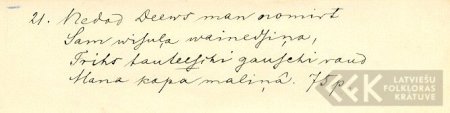 21. Nedod Deews man nomirt
Sam wiſuļa wainedſiņa,
Trihs tauteeſchi gauſchi raud
Mana kapa maliņâ. 75 p
LATVIEŠU
FOLKLORAS
KRĀTUVE